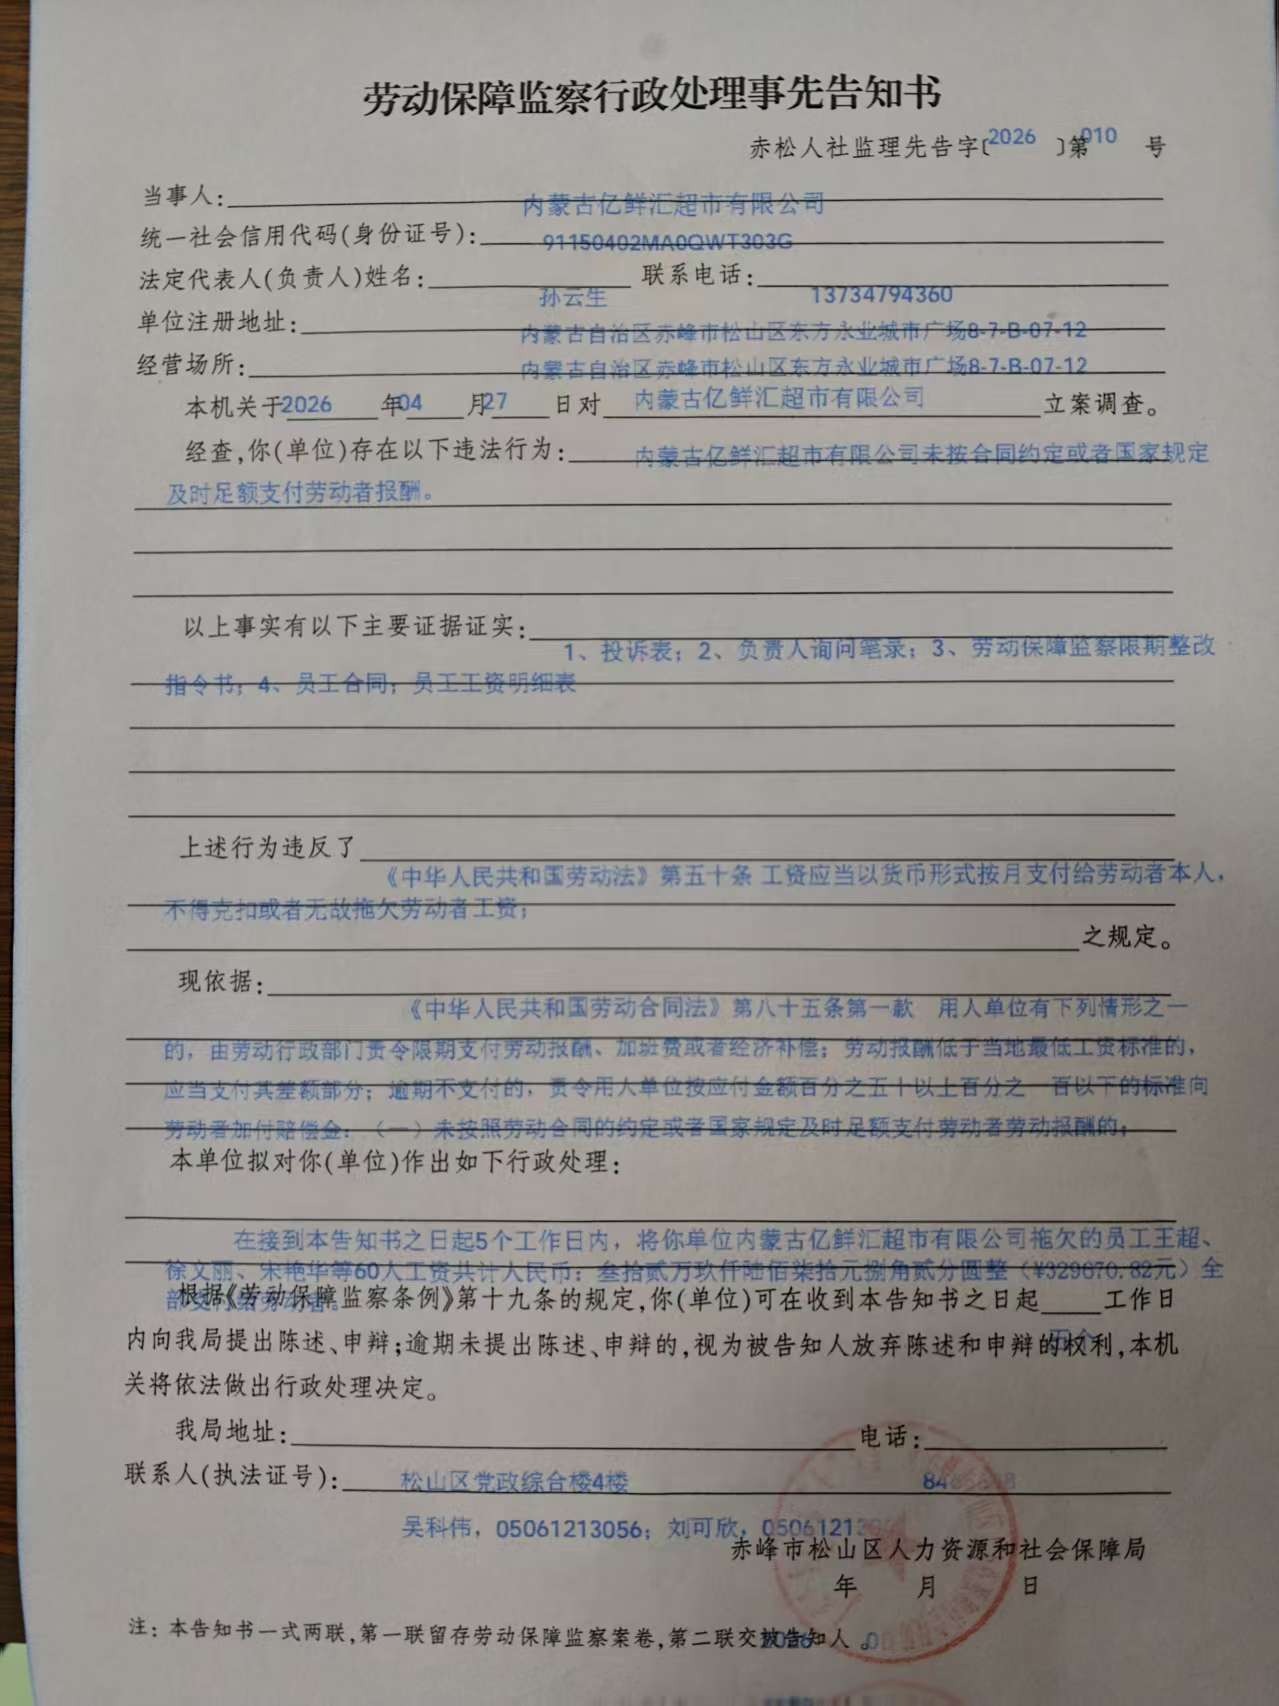 劳动保障监察行政处理事先告知书
赤松人社监理先告字〔2026〕第010号
当事人:内蒙古亿鲜汇超市有限公司
统一社会信用代码(身份证号):91150402MA0QWT303G
法定代表人(负责人)姓名:孙云生 联系电话:13734794360
单位注册地址:内蒙古自治区赤峰市松山区东方永业城市广场8-7-B-07-12
经营场所:内蒙古自治区赤峰市松山区东方永业城市广场8-7-B-07-12
本机关于2026年04月27日对内蒙古亿鲜汇超市有限公司立案调查。
经查,你(单位)存在以下违法行为:内蒙古亿鲜汇超市有限公司未按合同约定或者国家规定
及时足额支付劳动者报酬。
以上事实有以下主要证据证实:
1、投诉表；2、负责人询问笔录；3、劳动保障监察限期整改
指令书；4、员工合同；员工工资明细表
上述行为违反了
《中华人民共和国劳动法》第五十条 工资应当以货币形式按月支付给劳动者本人，
不得克扣或者无故拖欠劳动者工资；
之规定。
现依据:
《中华人民共和国劳动合同法》第八十五条第一款 用人单位有下列情形之一
的，由劳动行政部门责令限期支付劳动报酬、加班费或者经济补偿；劳动报酬低于当地最低工资标准的，
应当支付其差额部分；逾期不支付的，责令用人单位按应付金额百分之五十以上百分之一百以下的标准向
劳动者加付赔偿金：（一）未按照劳动合同的约定或者国家规定及时足额支付劳动者劳动报酬的；
本单位拟对你(单位)作出如下行政处理:
在接到本告知书之日起5个工作日内，将你单位内蒙古亿鲜汇超市有限公司拖欠的员工王超、
徐文丽、宋艳华等60人工资共计人民币：叁拾贰万玖仟陆佰柒拾元捌角贰分圆整（¥329670.82元）全
根据《劳动保障监察条例》第十九条的规定,你(单位)可在收到本告知书之日起五个工作日
内向我局提出陈述、申辩;逾期未提出陈述、申辩的,视为被告知人放弃陈述和申辩的权利,本机
关将依法做出行政处理决定。
我局地址: 电话:
联系人(执法证号): 松山区党政综合楼4楼 84
吴科伟，05061213056；刘可欣，0506121
赤峰市松山区人力资源和社会保障局
年 月 日
注：本告知书一式两联,第一联留存劳动保障监察案卷,第二联交被告知人。